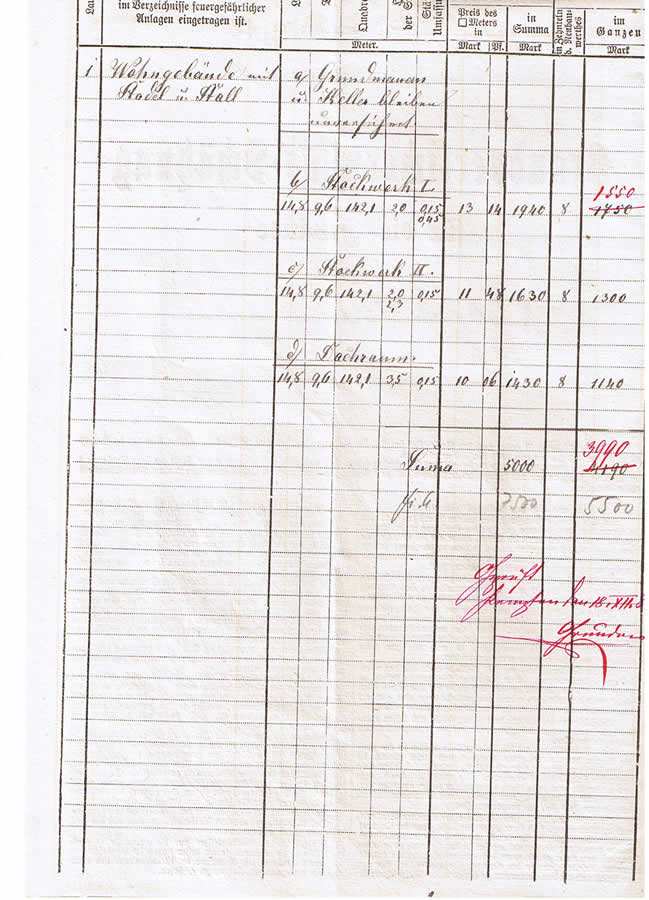 im Verzeichnisse feuergefährlicher
Anlagen eingetragen ist.
Quadr
der
Umfassu
Meter.
Preis des
□ Meters
in
Mark Pf.
in
Summa
Mark
in Zehnteln
d. Neubau-
werthes
im
Ganzen
Mark
1 Wohngebäude mit a) Grundmauern
Stadel u. Stall u. Keller bleiben
unversichert
b) Stockwerk I.
1550
14,8 9,6 142,1 2,0 0,15 13 14 1940 8 1750
0,45
c) Stockwerk II.
14,8 9,6 142,1 2,0 0,15 11 48 1630 8 1300
2,3
d) Dachraum.
14,8 9,6 142,1 3,5 0,15 10 06 1430 8 1140
3990
Suma 5000 4190
7500 5500
Geprüft
Kempten den 18